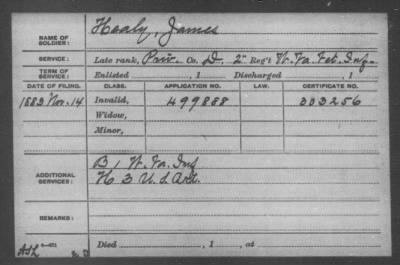 NAME OF SOLDIER: Healy, James
SERVICE: Late rank, Priv. Co. D. 2" Reg't W. Va. Vet. Inf.
TERM OF SERVICE: Enlisted , 1 Discharged , 1
DATE OF FILING. CLASS. APPLICATION NO. LAW. CERTIFICATE NO.
1883 Nov. 14 Invalid, 499888 303256
Widow,
Minor,
ADDITIONAL SERVICES: B 1 W. Va. Inf
H 3 U.S. Art.
REMARKS:
Died , 1 , at